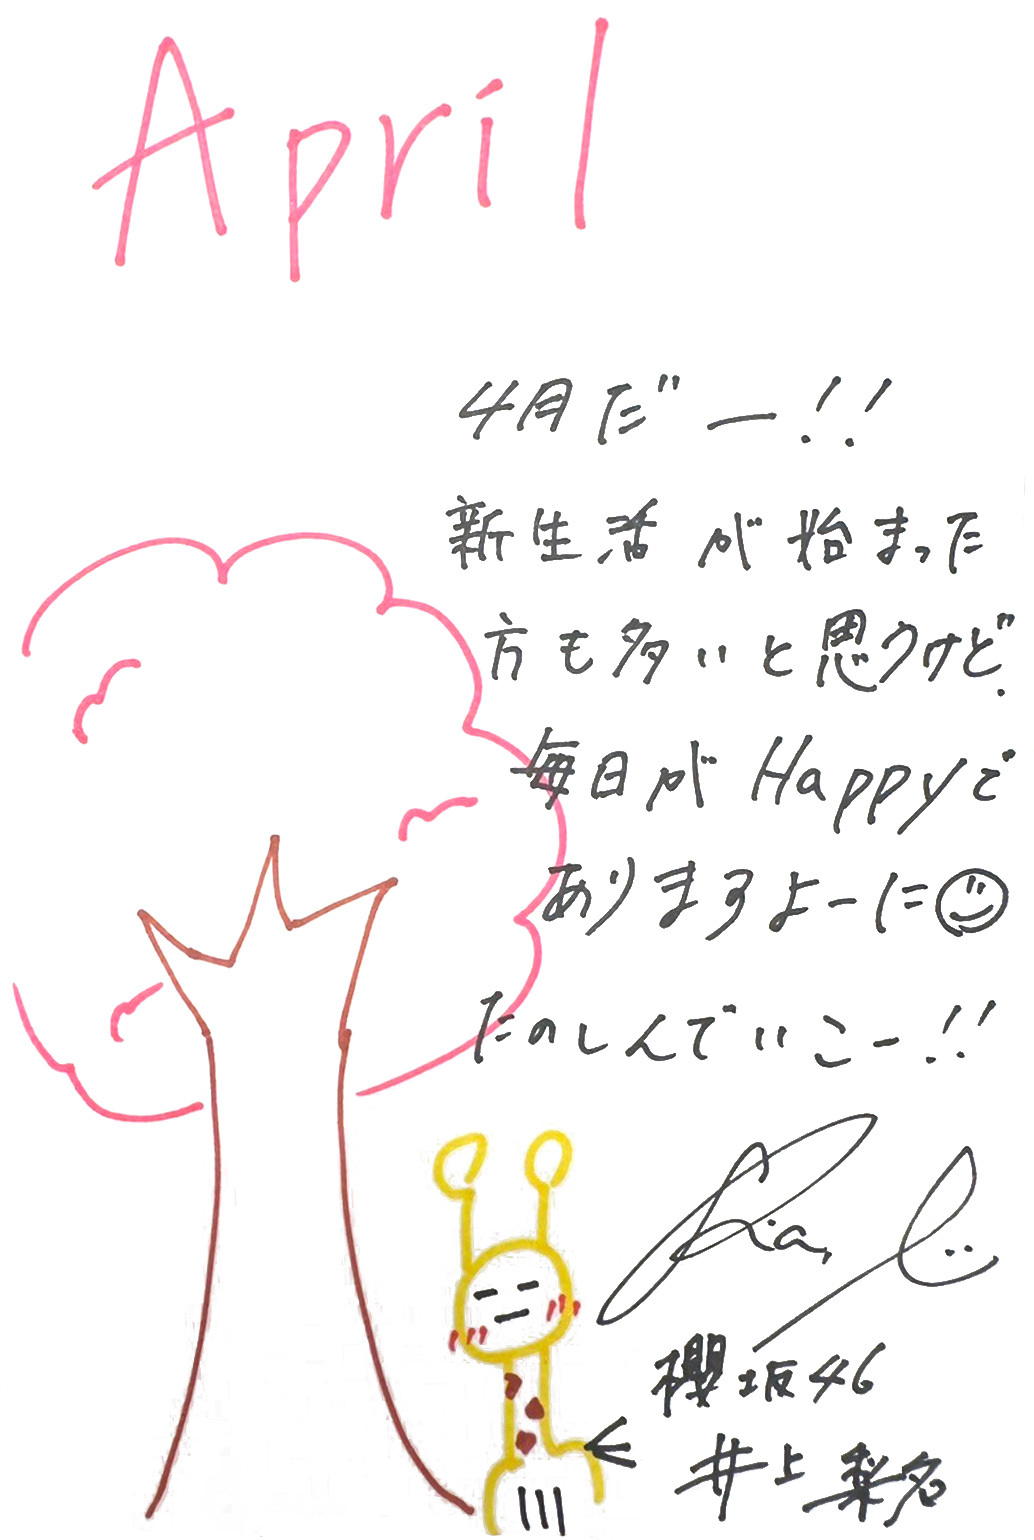 April
4月だー!!
新生活が始まった
方も多いと思うけど、
毎日がHappyで
ありますよーに
たのしんでいこー!!
Rina
櫻坂46
井上梨名